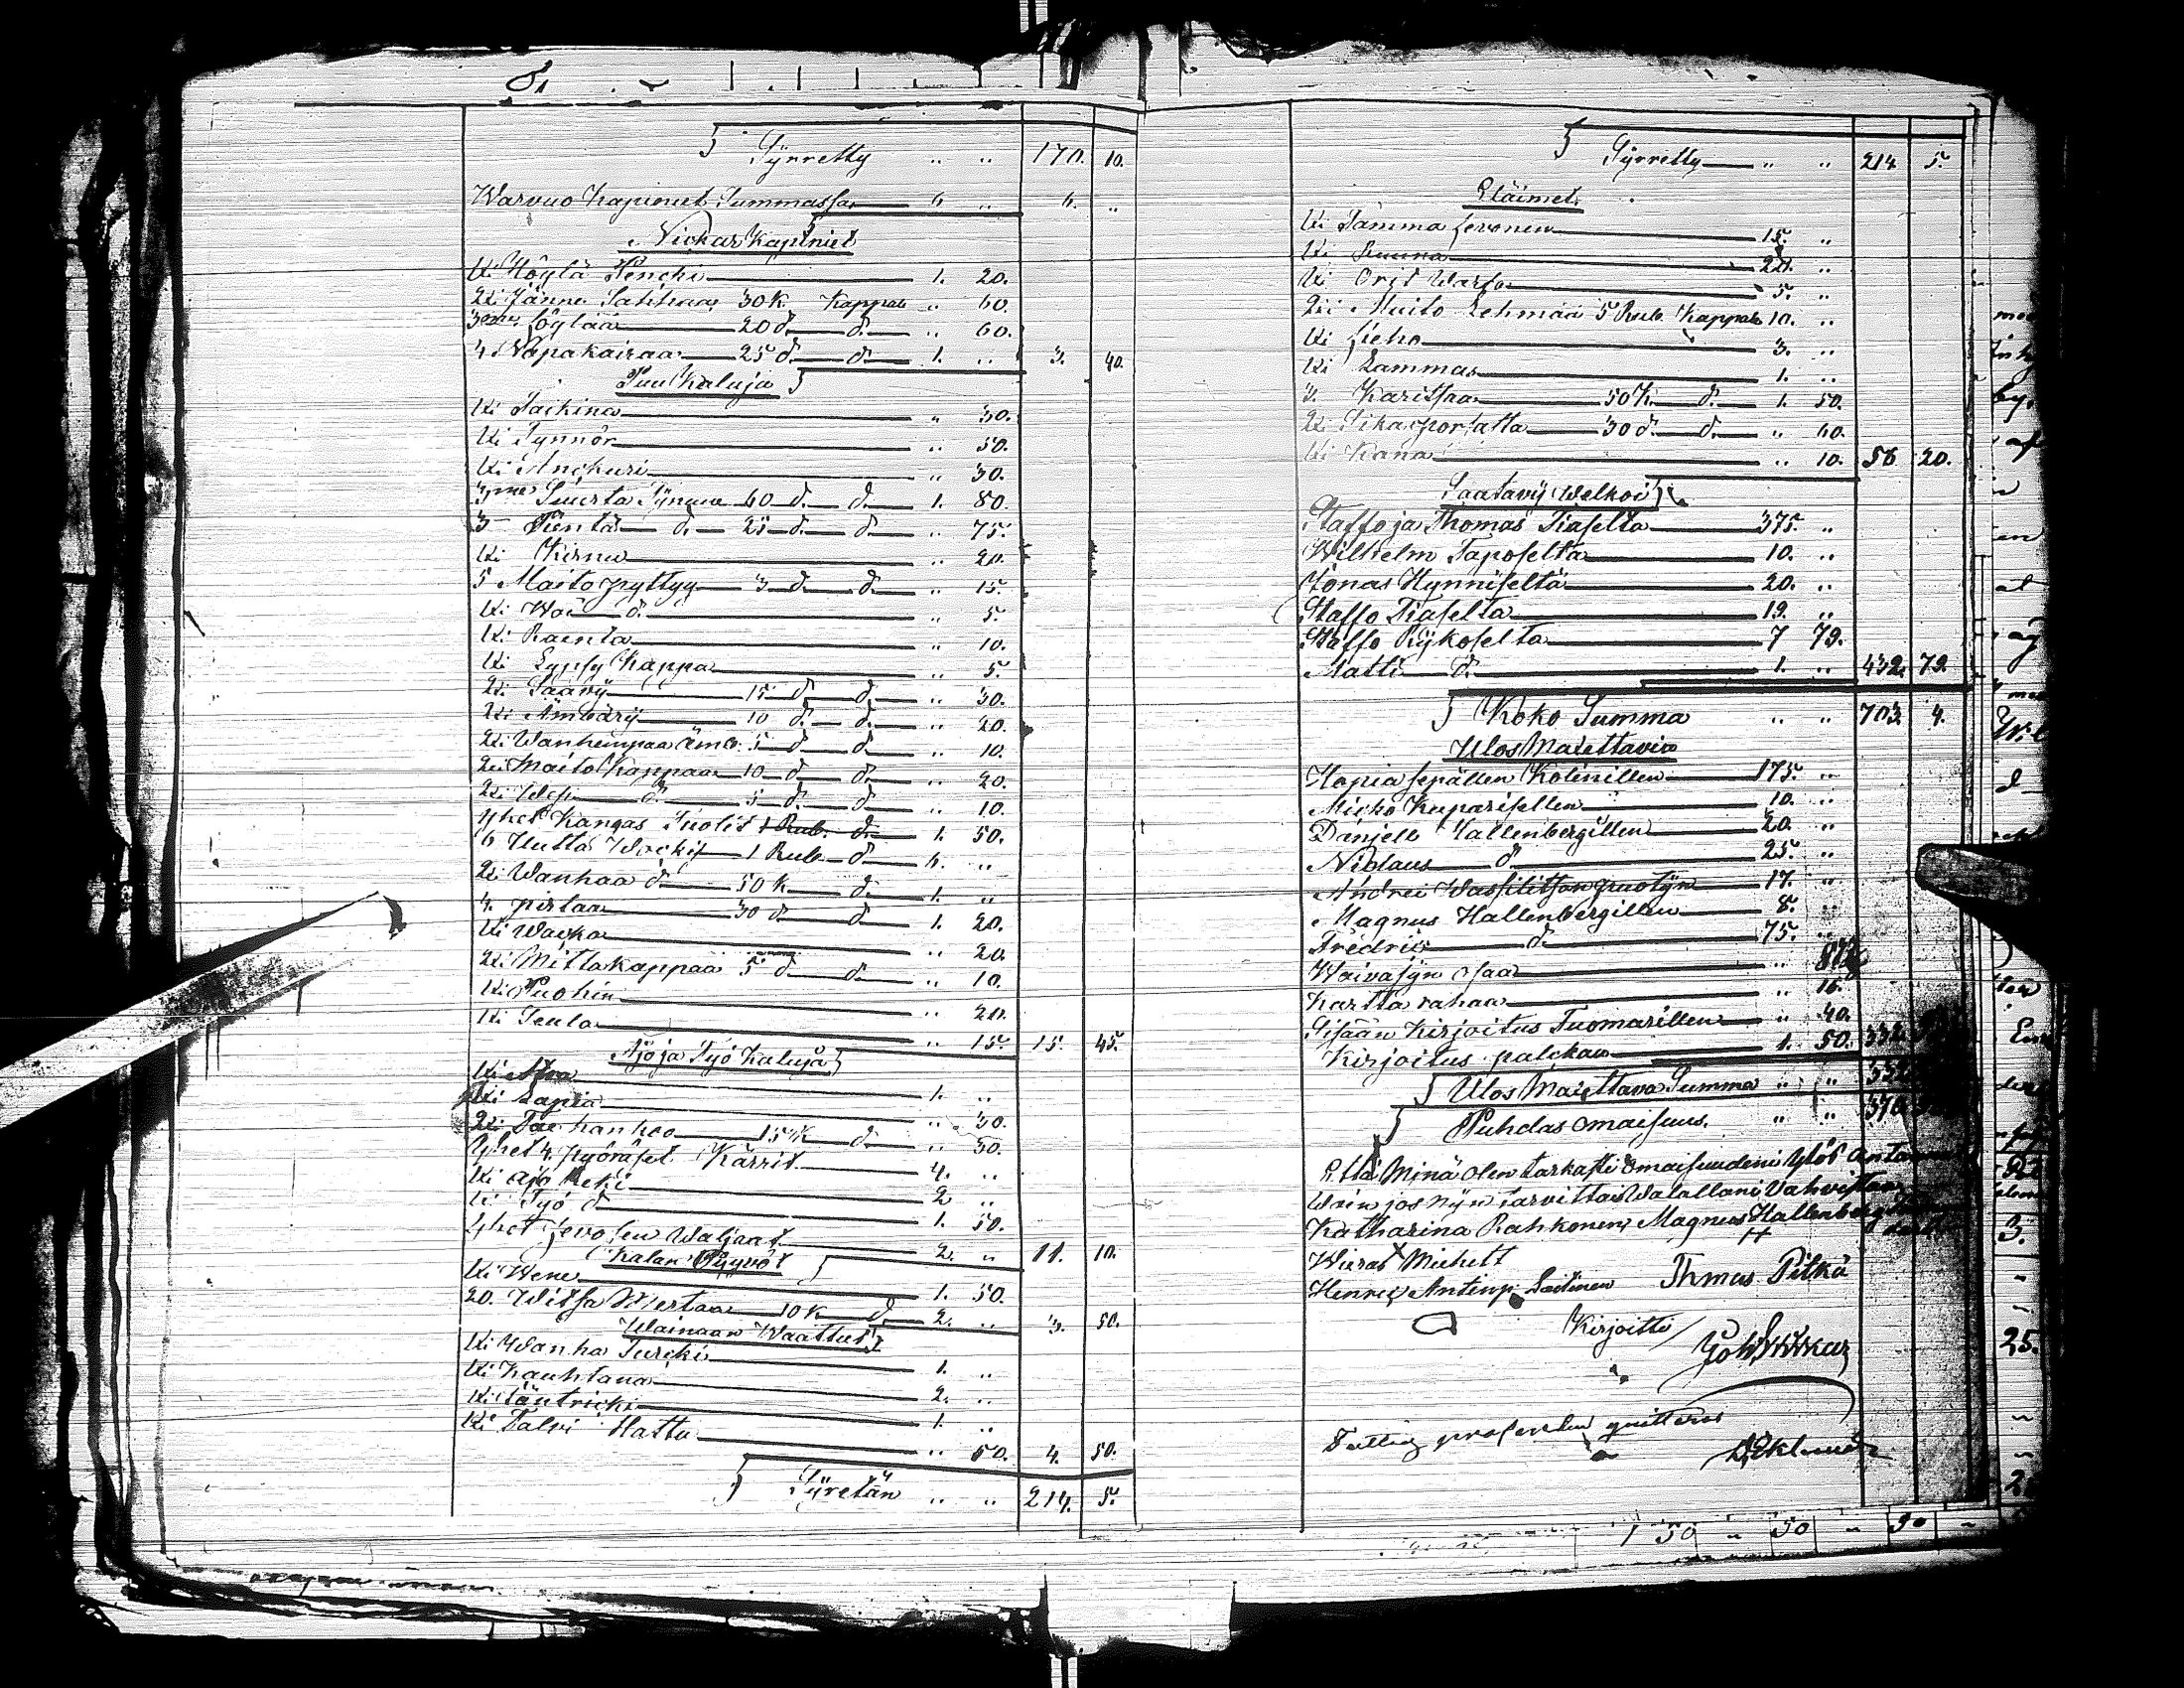 Syrretty " " 170. 10.
Warvuo Kapinet Summassa 6 .. 6. ..
Nickar Kapinet
1ki Höylä Penchi 1. 20.
2ki Jänne Sahhaa 30 K. Kappale .. 60.
3me Höylää 20 d. d. .. 60.
4 Napakairaa 25 d. d. 1. .. 3. 40.
Puu Kaluja
1ki Taikina .. 30.
1ki Tynnör .. 50.
1ki Anckuri .. 30.
3me Suurta Tynnua 60 d. d. 1. 80.
3 Pientä d. 25 d. d. .. 75.
1ki Kirnu .. 20.
5 Maito pyttyy 3 d. d. .. 15.
1ki Woi d. .. 5.
1ki Rainta .. 10.
1ki Lypsy Kappa .. 5.
2ki Saavy 15 d. d. .. 30.
2ki Ämbäry 10 d. d. .. 20.
2ki Wanhempaa ämb. 5 d. d. .. 10.
2ki Maito Kappaa 10 d. d. .. 20.
2ki Wesi d. 5 d. d. .. 10.
Yhet Kangas Puolit 1 Rub. d. 1. 50.
6 Uutta Wockij 1 Rub. d. 6. ..
2ki Wanhaa d. 50 K. d. 1. ..
4. pirtaa 30 d. d. 1. 20.
1ki Wacka .. 20.
2ki Mitta kappaa 5 d. d. .. 10.
1ki Puohin .. 20.
1ki Seula .. 15. 15. 45.
Ajo ja Työ Kaluja
1ki 1. ..
1ki Lapia .. 30.
2ki hankoo 15 K. d. .. 30.
Yhet 4. pyöräset Kärrit 4. ..
1ki ajo Reki 2 ..
1ki Työ d. 1. 50.
Yhet Hevosen Waljaat 2. .. 11. 10.
Kalan Pyyvöt
1ki Wene 1. 50.
20. Witsa Mertaa 10 K d. 2. .. 3. 50.
Wainaan Waattet
1ki Wanha Turcki 1. ..
1ki Kauhtana 2. ..
1ki 1. ..
1ki Talvi Hattu .. 50. 4. 50.
Syretän .. .. 214. 5.
Syrretty .. .. 214 5.
Eläimet
1ki Tamma Hevonen 15. ..
1ki Ruuna 20. ..
1ki Orit Warsa 5. ..
2ki Maito Lehmää 5 Rub. Kappale 10. ..
1ki Hieho 3. ..
1ki Lammas 1. ..
3. Karitsaa 50 K. d. 1. 50.
2ki Sikasporsatta 30 d. d. .. 60.
1ki Kana .. 10. 56 20.
Saatavij Welkoi
Staffo ja Thomas Piaselta 375. ..
Wilhelm Taposelta 10. ..
Jonas Hynniseltä 20. ..
Staffo Piaselta 19. ..
Staffo Rykoselta 7 79.
Matti d. 1. .. 432. 79.
Koko Summa .. .. 703. 4.
Ulos Maxettavia
Hopia sepällen Kolinillen 175. ..
Micko Kuparisellen 10. ..
Danjell Hallenbergillen 20. ..
Niclaus d. 25. ..
Andrei Wassilitson puolyn 17. ..
Magnus Hallenbergillen 8. ..
Fredric d. 75. ..
Waivasyn osaa ..
Kartta rahaa .. 16.
Sisään Kirjoitus Tuomarillen .. 40.
Kirjoitus palckaa 1. 50.
Ulos Maxettava Summa .. ..
Puhdas omaisuus. .. ..
Että Minä olen tarkasti omaisuudeni Ylös antanu
Wain jos nijn tarvittais Walallani Vahvistaa
Katharina Rahkonen Magnus Hallenberg
Wierat Miehett
Henric Antinp. Laitinen Thmas Pitkä
Kirjoitti
Eklund